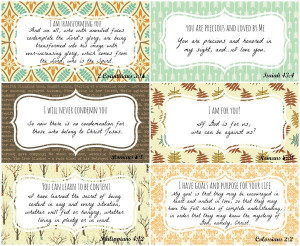 I AM TRANSFORMING YOU
And we all, who with unveiled faces
contemplate the Lord's glory, are being
transformed into his image with
ever-increasing glory, which comes
from the Lord, who is the Spirit.
YOU ARE PRECIOUS AND LOVED BY ME
You are precious and honored in
my sight, and...I love you.
Isaiah 43:4
I WILL NEVER CONDEMN YOU
So now there is no condemnation for
those who belong to Christ Jesus.
Romans
I AM FOR YOU!
If God is for us,
who can be against us?
Romans
YOU CAN LEARN TO BE CONTENT
I have learned the secret of being
content in any and every situation,
whether well fed or hungry, whether
living in plenty or in want.
Philippians 4:12
I HAVE GOALS AND PURPOSE FOR YOUR LIFE
My goal is that they may be encouraged in
heart and united in love, so that they may
have the full riches of complete understanding,
in order that they may know the mystery
of God, namely, Christ.
Colossians 2:2